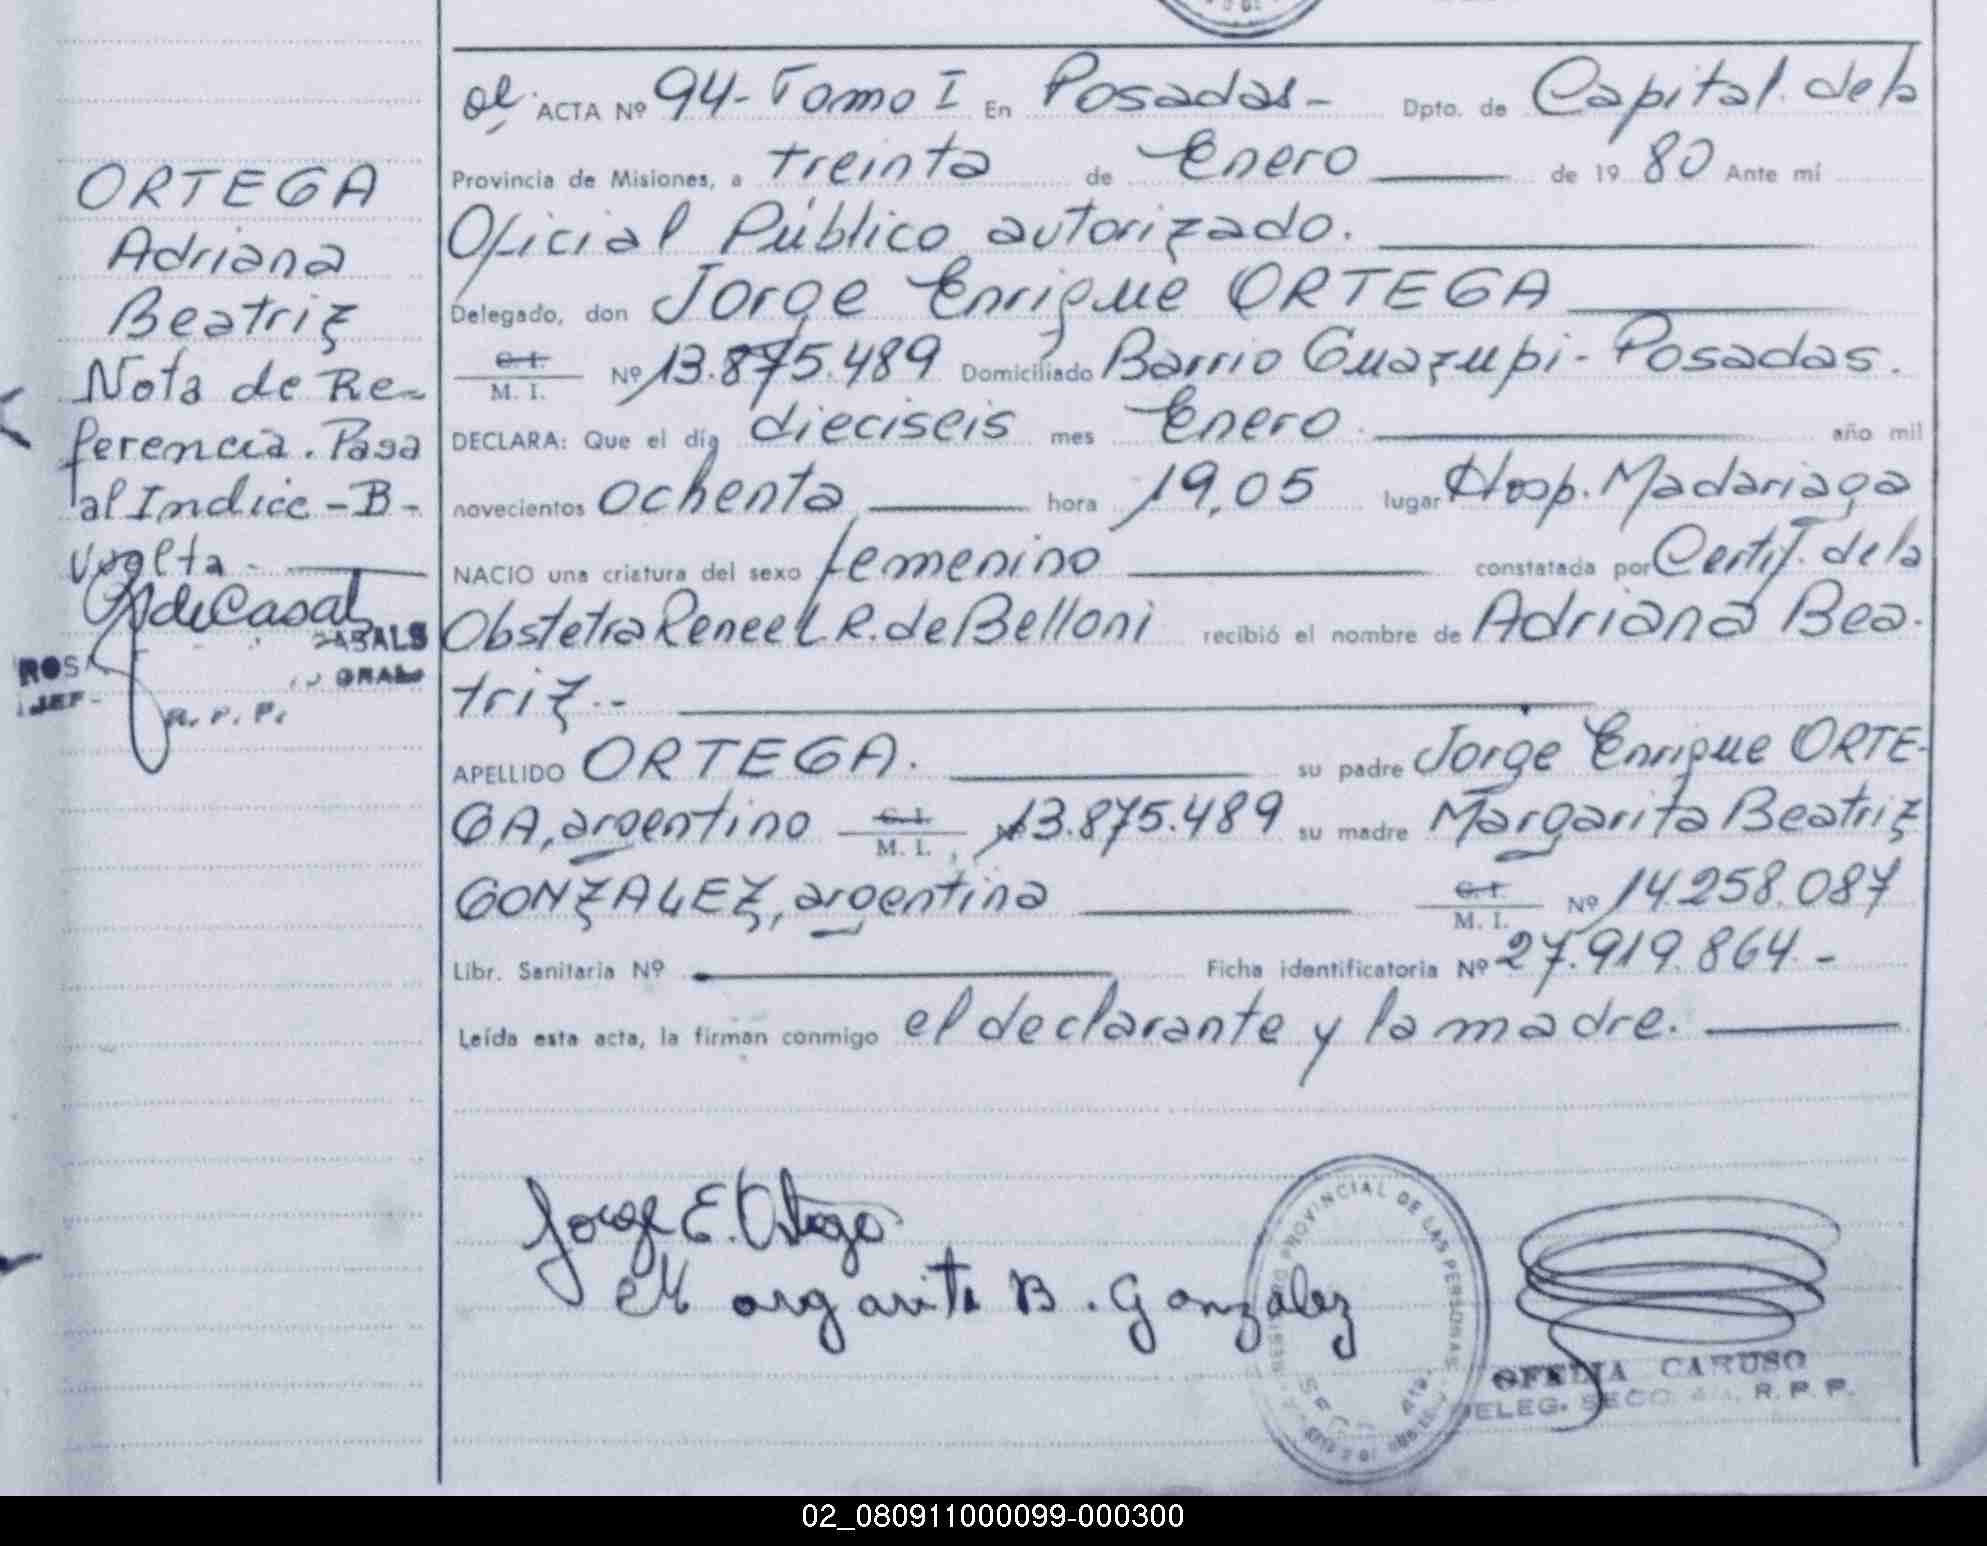 ORTEGA
Adriana
Beatriz
Nota de Re-
ferencia. Pasa
al Indice - B -
vuelta -
de Casal
CASALS
ROS
JEF
GRAL
R. P. P.
ACTA Nº 94 - Tomo I En Posadas - Dpto. de Capital. de la
Provincia de Misiones, a treinta de Enero de 19 80 Ante mí
Oficial Público autorizado.
Delegado, don Jorge Enrique ORTEGA
C. I.
M. I. Nº 13.875.489 Domiciliado Barrio Guazupi - Posadas.
DECLARA: Que el día dieciseis mes Enero. año mil
novecientos ochenta hora 19,05 lugar Hosp. Madariaga
NACIO una criatura del sexo femenino constatada por Certif. de la
Obstetra Renee L. R. de Belloni recibió el nombre de Adriana Bea-
triz.-
APELLIDO ORTEGA. su padre Jorge Enrique ORTE-
GA, argentino C. I. M. I. Nº 13.875.489 su madre Margarita Beatriz
GONZALEZ, argentina C. I. M. I. Nº 14.258.087
Libr. Sanitaria Nº Ficha identificatoria Nº 27.919.864.-
Leída esta acta, la firman conmigo el declarante y la madre.
Jorge E. Ortega
Margarita B. González
REGISTRO PROVINCIAL DE LAS PERSONAS
OFELIA CARUSO
DELEG. SECC. R. P. P.
02_080911000099-000300